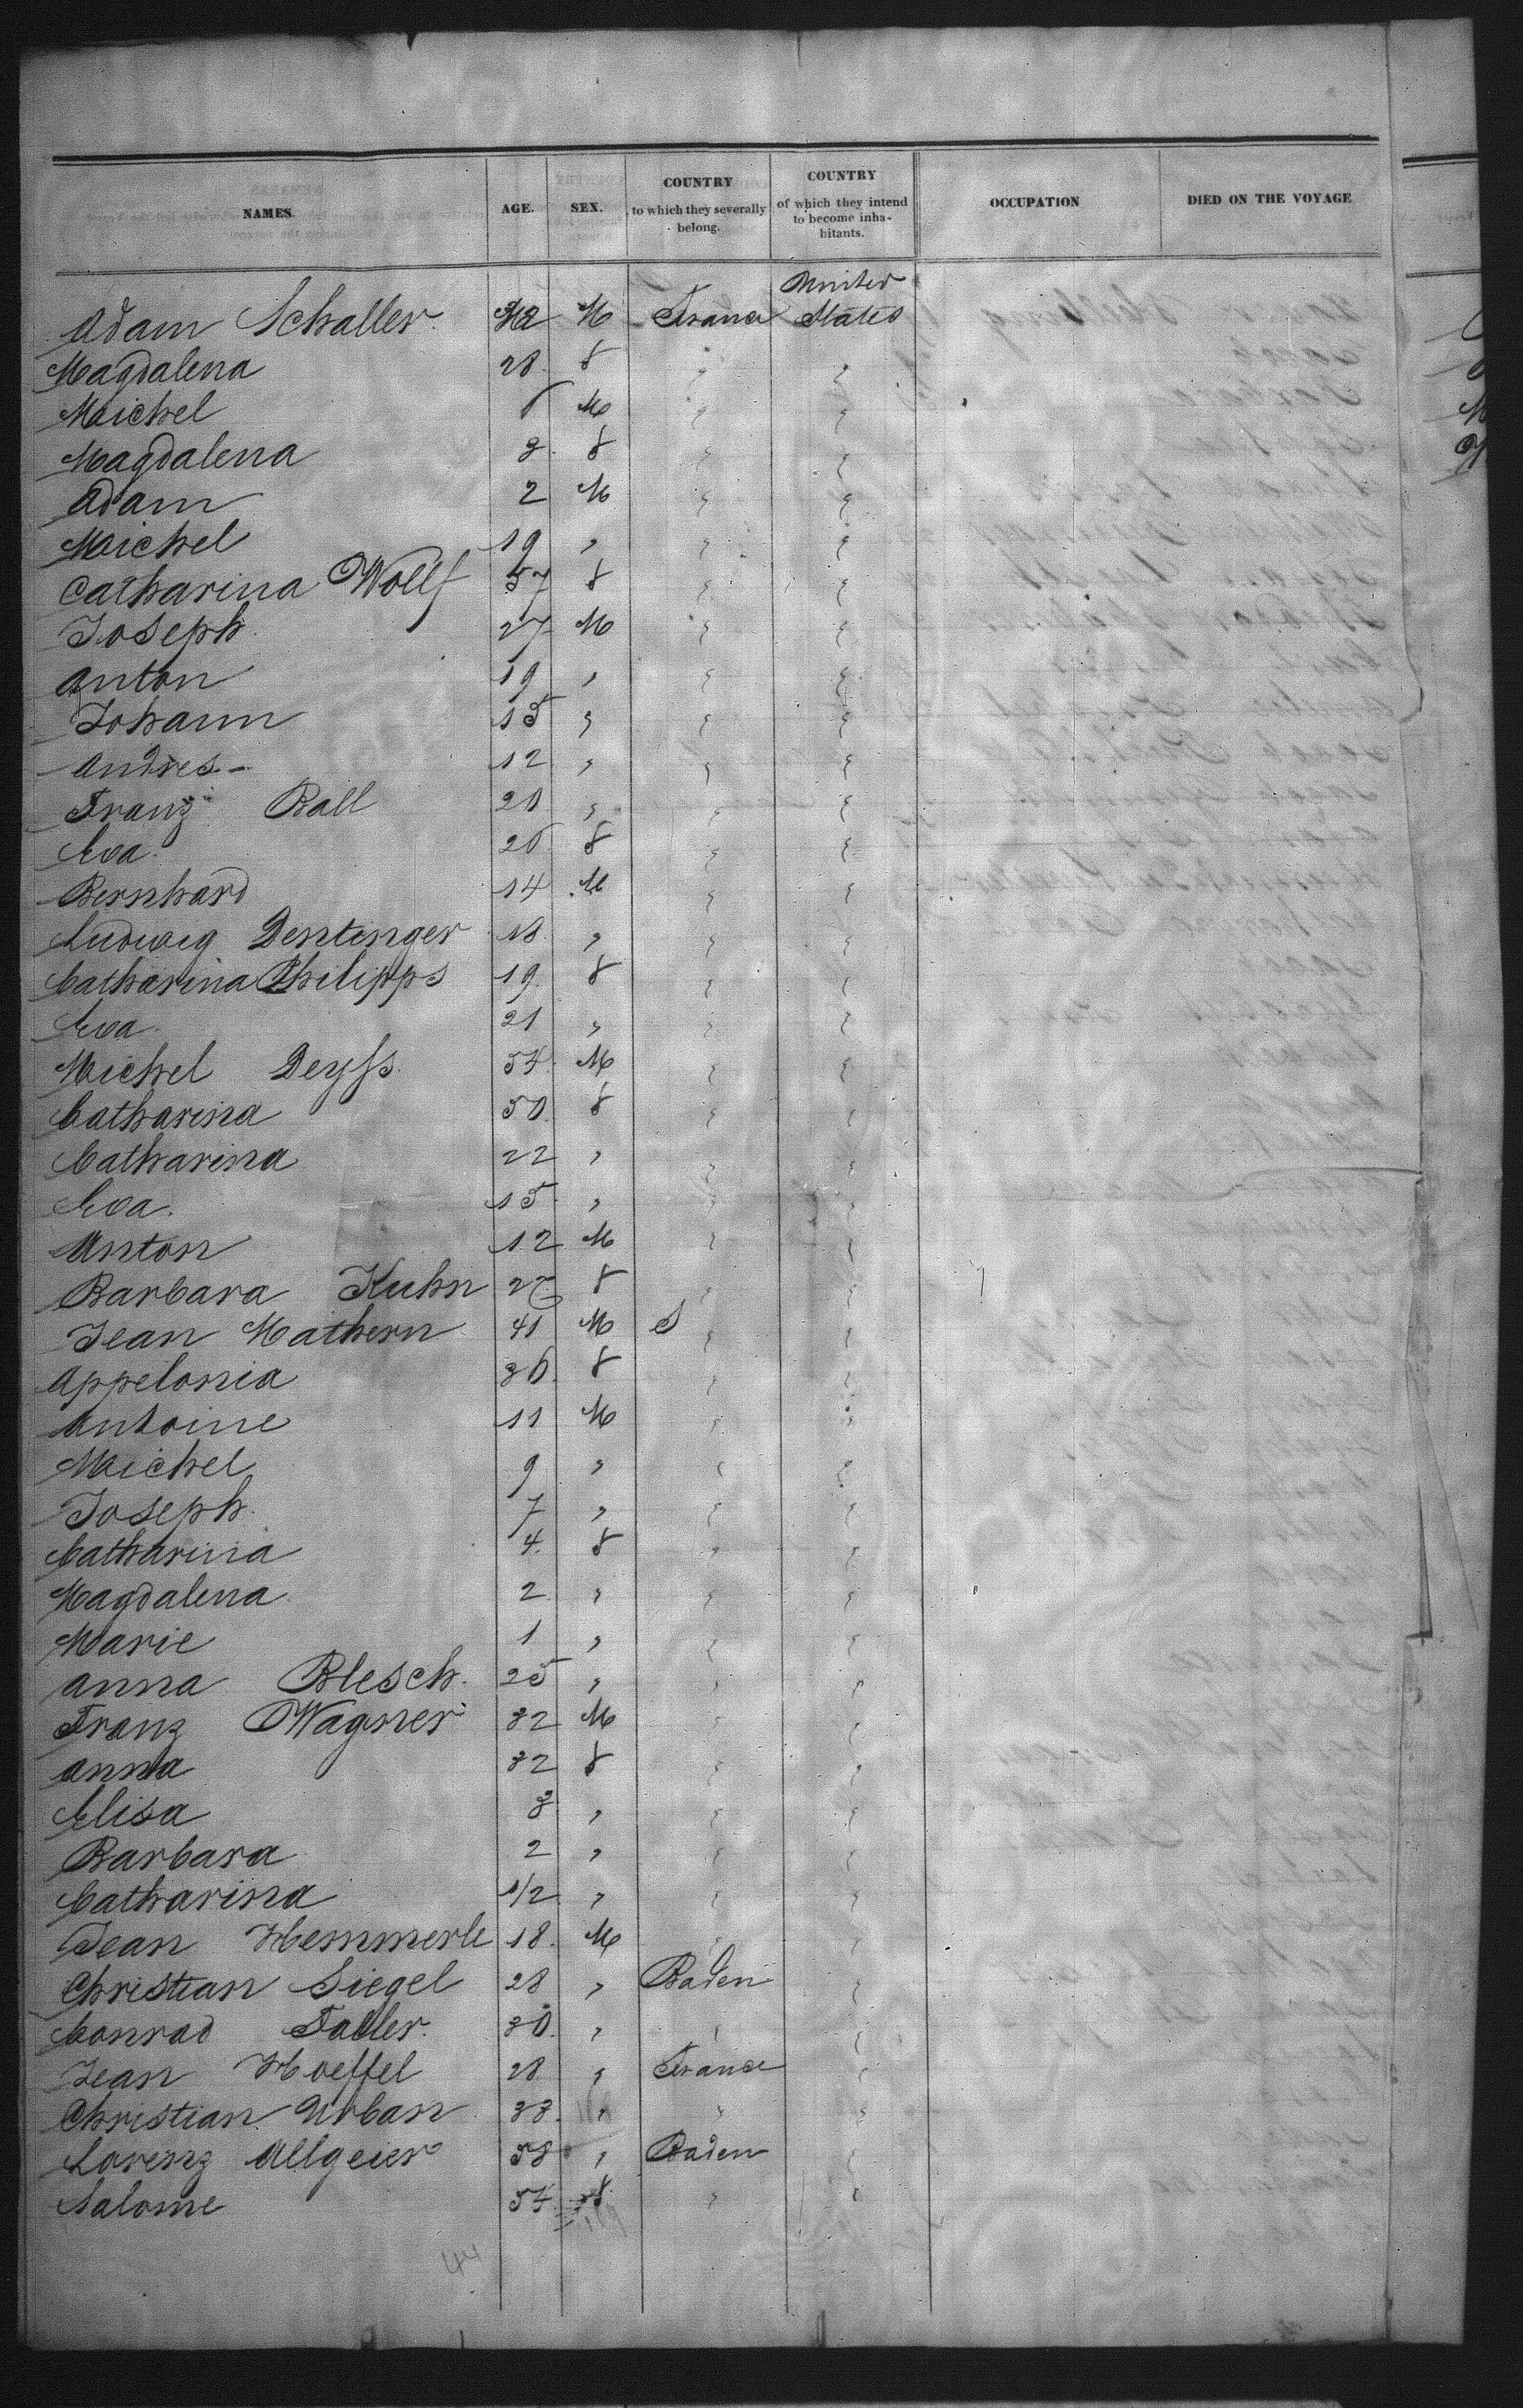 NAMES. AGE. SEX. COUNTRY to which they severally belong. COUNTRY of which they intend to become inhabitants. OCCUPATION DIED ON THE VOYAGE
United
Adam Schaller. M France States
Magdalena 28. f " "
Michel 6 M " "
Magdalena 3. f " "
Adam 2 M " "
Michel 19 " " "
Catharina Wolff 57 f " "
Joseph. 27 M " "
Anton 19 " " "
Johann 15 " " "
Andres - 12 " " "
Franz Ball 20 " " "
Eva. 26. f " "
Bernhard 14 M " "
Ludwig Dentinger 18. " " "
Catharina Philipps 19. f " "
Eva. 21 " " "
Michel Deyss. 54. M " "
Catharina 50. f " "
Catharina 22 " " "
Eva. 15. " " "
Anton 12 M " "
Barbara Kuhn 27 f " "
Jean Mathern 41 M " "
Appelonia 36. f " "
Antoine 11 M " "
Michel 9 " " "
Joseph. 7 " " "
Catharina 4. f " "
Magdalena. 2. " " "
Marie 1 " " "
Anna Blesch. 25 " " "
Franz Wagner 32 M " "
Anna 32 f " "
Elisa 3 " " "
Barbara 2 " " "
Catharina 1/2 " " "
Jean Hemmerle 18. M " "
Christian Siegel 28 " Baden "
Conrad Faller. 30. " " "
Jean Hoeffel 28 " France "
Christian Urban 33. " " "
Lorenz Allgeier 58 " Baden "
Salome 54 f. " "
44